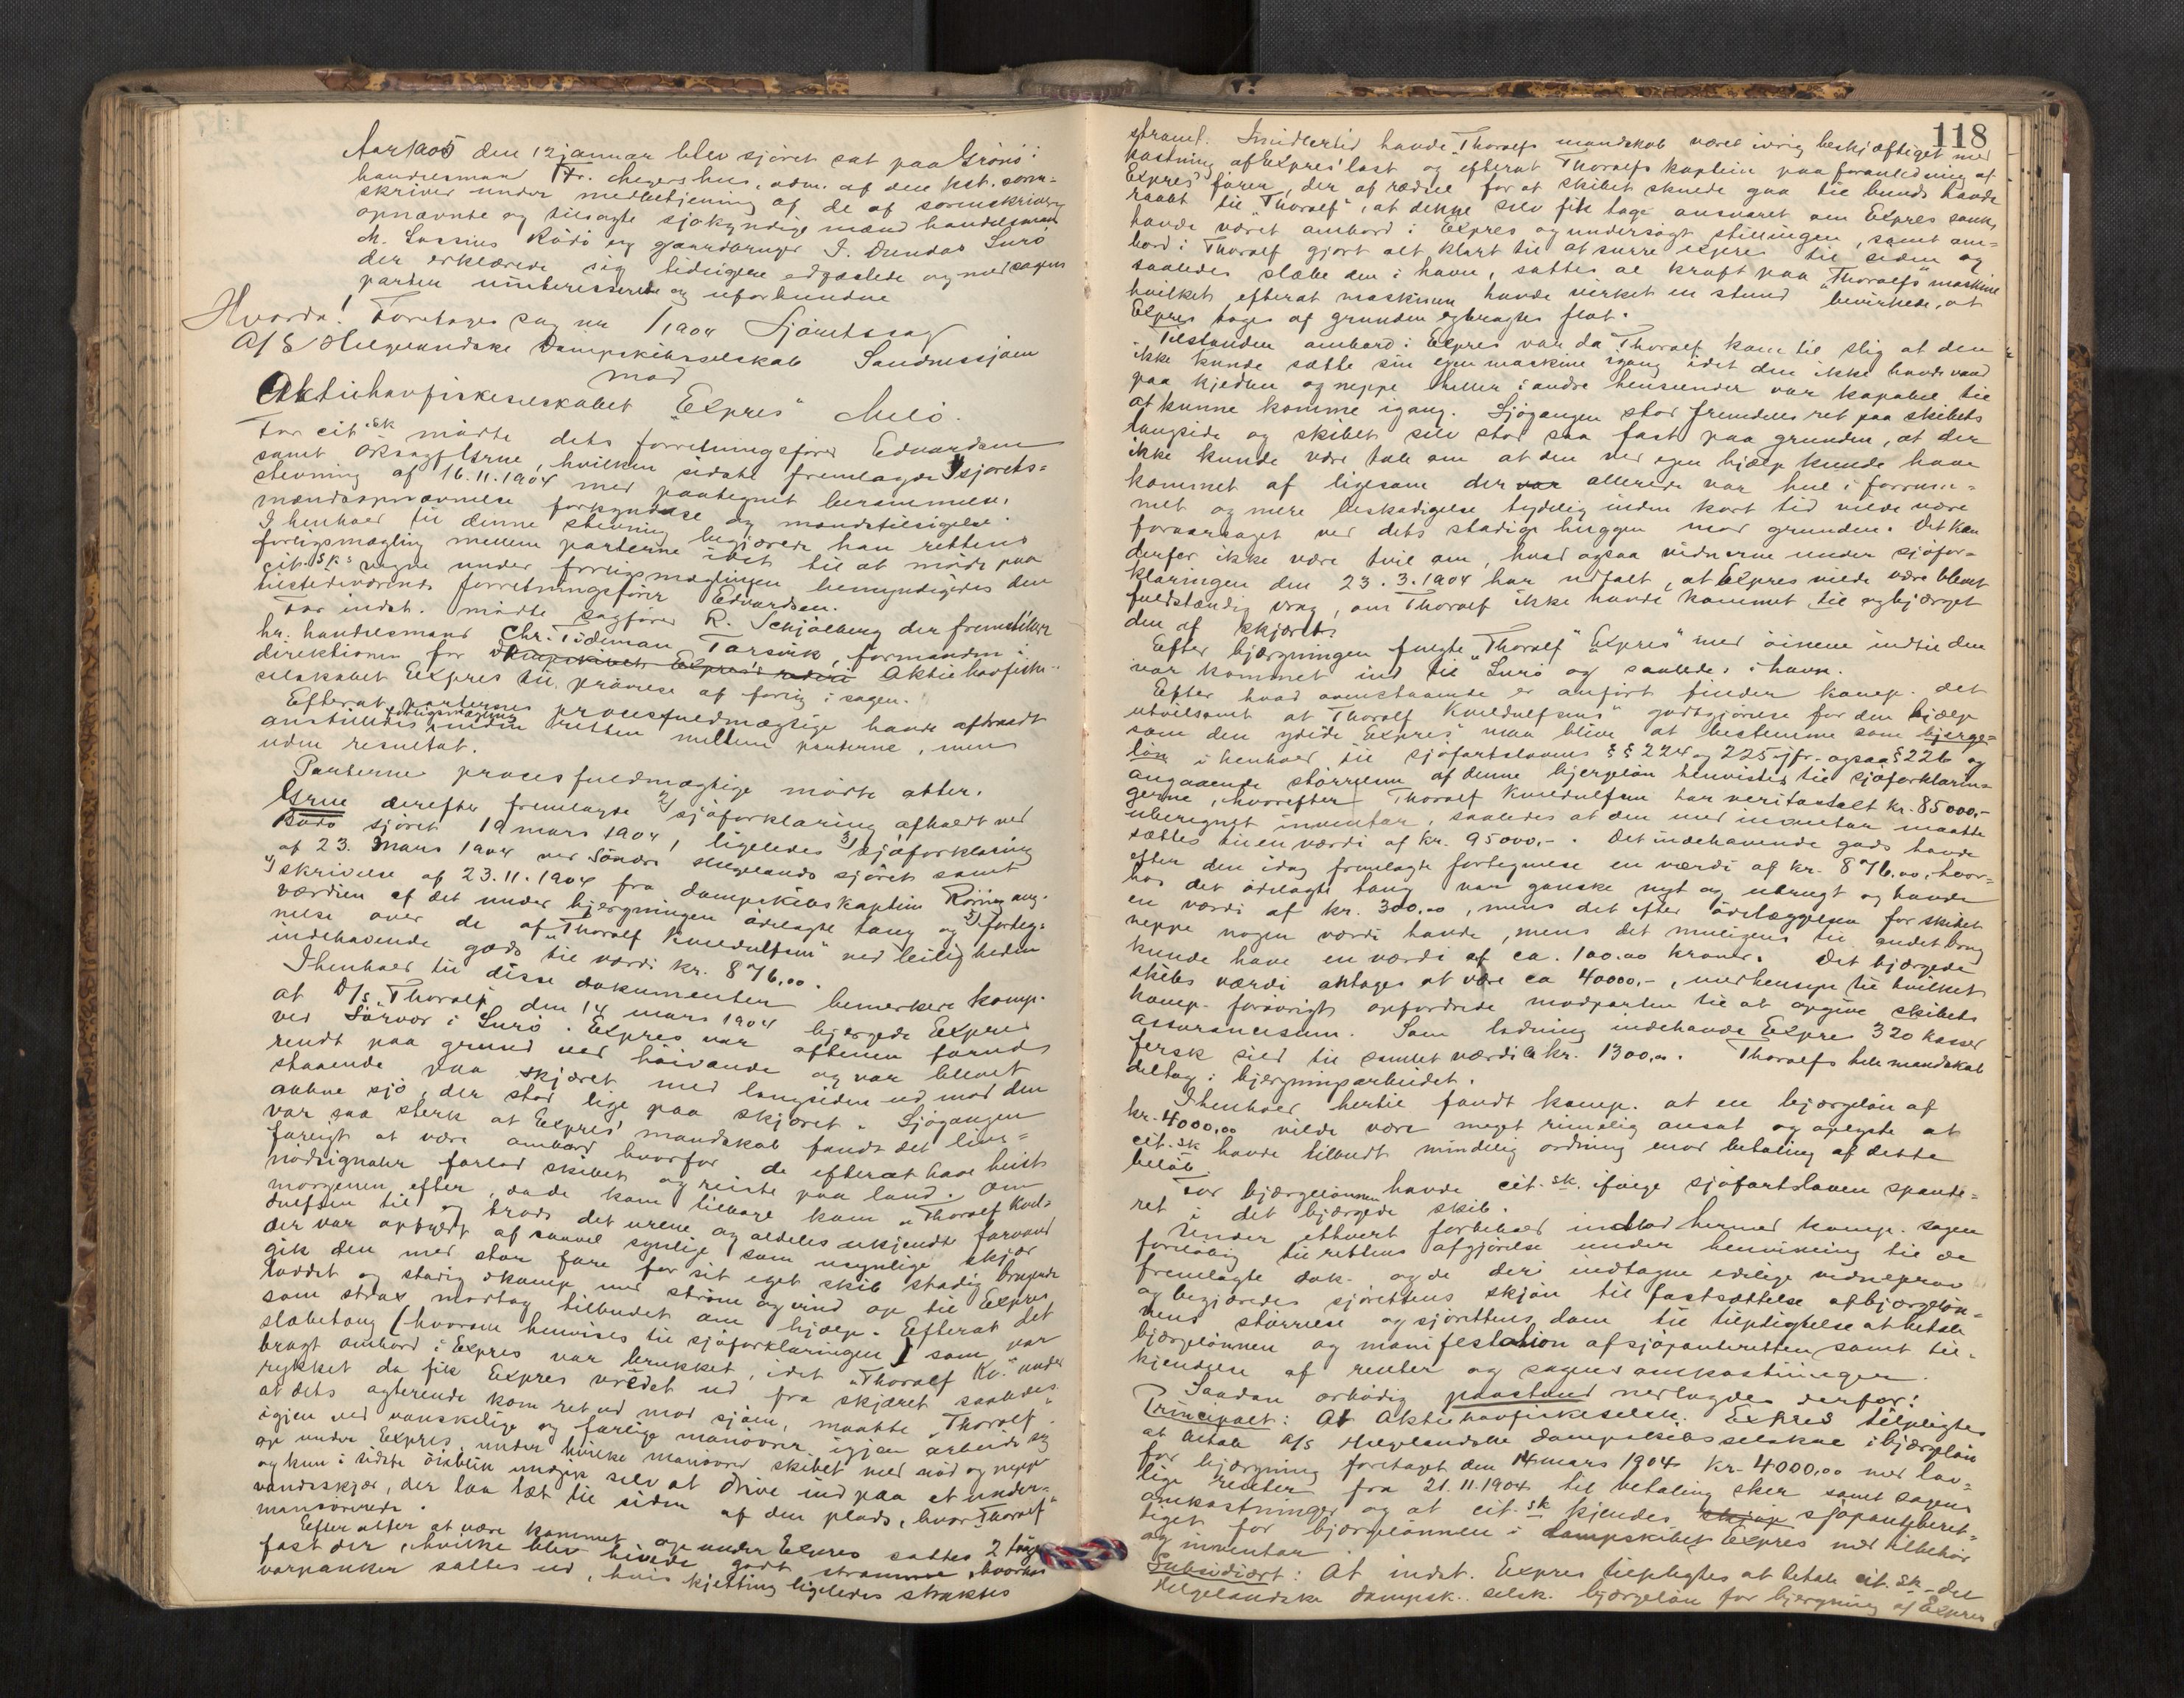 Aar 1905 den 12 januar blev sjöret sat paa Grönö i
handelsmand Fr. Meyers hus, adm. af den kst. soren-
skriver under medbetjening af de af sorenskriveren
opnævnte og tilsagte sjökyndige mænd handelsmand
M. Lassius Rödö og gaardbruger J. Dundas Lurö
der erklærede sig tidligere edfæstede og med sagens
parter uinteresserede og uforbundne
Hvorda! Foretoges sag nr 1/1904 Sjöretssag
A/S Helgelandske Dampskibsselskab Sandnessjöen
mod
Aktiehavfiskeselskabet "Expres" Melö.
For cit.sk mödte dets forretningsförer Edvardsen
samt Grue, hvilken sidste fremlagde sjörets-
stevning af 16.11.1904 med paategnet berammelse,
mændsopnævnelse forkyndelse og mandstilsigelse.
I henhold til denne stevning begjærede han rettens
forligsmægling mellem parterne idet til at möde paa
cit.sk.s vegne under forligsmæglingen bemyndigedes den
tilstedeværende forretningsförer Edvardsen.
For indst. mödte sagförer R. Schjölberg der fremstiller
hr. handelsmand Chr. Tideman Torsvik, formanden i
direktionen for dampskibet Expres's rederi Aktiehavfiske-
selskabet Expres til prövelse af forlig i sagen.
Efterat parternes procesfuldmægtige havde aftraadt
anstilledes forligsmægling inden retten mellem parterne, men
uden resultat.
Parternes procesfuldmægtige mödte atter.
Grue derefter fremlagde 2/ sjöforklaring afholdt ved
Bodö sjöret 19 mars 1904, ligeledes 3/ sjöforklaring
af 23. mars 1904 ved Söndre Helgelands sjöret samt
4/ skrivelse af 23.11.1904 fra dampskibskaptein Röring ang.
værdien af det under bjergningen ödelagte taug og 5/ forteg-
nelse over de af "Thorolf Kveldulfsen" ved leiligheden
indehavende gods til værdi kr. 876.00.
I henhold til disse dokumenter bemerker komp.
at D/S "Thorolf" den 14 mars 1904 bjergede Expres
ved Sörvær i Lurö. Expres var aftenen forud
rendt paa grund ved höivande og var blevet
staaende paa skjæret med langsiden ud mod den
aabne sjö, der stod lige paa skjæret. Sjögangen
var saa sterk at Expres' mandskab fandt det livs-
farligt at være ombord hvorfor de efterat have heist
nödsignaler forlod skibet og reiste paa land. Om
morgenen efter, da de kom tilbage kom "Thorolf Kvel-
dulfsen til og trods det urene og aldeles ukjendte farvand
der var opfyldt af saavel synlige som usynlige skjær
gik den med stor fare for sit eget skib stadig brugende
loddet og stadig ikamp med ström og vind op til Expres,
som strax modtog tilbudet om hjælp. Efterat det
slæbetaug (hvorom henvises til sjöforklaringen) som var
bragt ombord i Expres var brukket, idet "Thorolf Kv." under
rykket da fik Expres vredet ud fra skjæret saaledes
at dets agterende kom ret ud mod sjöen, maatte "Thorolf"
igjen ved vanskelige og farlige manövrer igjen arbeide sig
op under Expres, under hvilke manövrer skibet med nöd og neppe
og kun i sidste öieblik undgik selv at drive ind paa et under-
vandsskjær, der laa tæt til siden af den plads, hvor Thorolf
manövrerede.
Efter atter at være kommet op under Expres sattes 2 tauge
fast der, hvilke blev hivede godt stramme, hvorhos
varpanker sattes ud, hvis kjetting ligeledes straktes
118
stramt. Imidlertid havde Thorolfs mandskab været ivrig beskjæftiget med
kastning af Expres' last og efterat Thorolfs kaptein paa foranledning af
Expres' förer, der af rædsel for at skibet skulde gaa til bunds havde
raabt til "Thorolf", at denne selv fik tage ansvaret om Expres sank,
havde været ombord i Expres og undersögt stillingen, samt om-
bord i Thorolf gjort alt klart til at surre expres til siden og
saaledes slæbe den i havn, sattes al kraft paa "Thorolfs" maskine
hvilket efterat maskinen havde virket en stund bevirkede, at
Expres toges af grunden og bragtes flot.
Tilstanden ombord i Expres var da Thorolf kom til slig at den
ikke kunde sætte sin egen maskine igang idet den ikke havde vand
paa kjedlen og neppe heller i andre henseender var kapabel til
at kunne komme igang. Sjögangen stod fremdeles ret paa skibets
langside og skibet selv stod saa fast paa grunden, at der
ikke kunde være tale om at den ved egen hjælp kunde have
kommet af ligesom der var allerede var hul i forrum-
met og mere beskadigelse tydelig inden kort tid vilde være
foraarsaget ved dets stadige huggen mod grunden. Det kan
derfor ikke være tvil om, hvad ogsaa vidnerne under sjöfor-
klaringen den 23.3.1904 har udtalt, at Expres vilde være blevet
fuldstændig vrag, om Thorolf ikke havde kommet til og bjærget
den af skjæret.
Efter bjærgningen fulgte "Thorolf" "Expres" med öinene indtil den
var kommet ind til Lurö og saaledes i havn.
Efter hvad ovenstaaende er anfört finder komp. det
utvilsomt at "Thorolf Kveldulfsens" godtgjörelse for den hjælp
som den ydede Expres maa blive at bestemme som bjerge-
lön i henhold til sjöfartslovens §§ 224 og 225 jfr. ogsaa § 226 og
angaaende störrelsen af denne bjergelön henvistes til sjöforklarin-
gerne, hvorefter Thorolf Kveldulfsen har veritastalt kr. 85000,-
uberegnet inventar, saaledes at den med inventar maatte
sættes til en værdi af kr. 95000,-. Det indehavende gods havde
efter den idag fremlagte fortegnelse en værdi af kr. 876.00, hvor-
hos det ödelagte taug var ganske nyt og ubrugt og havde
en værdi af kr. 300.00, mens det efter ödelæggelsen for skibet
neppe nogen værdi havde, mens det muligens til andet brug
kunde have en værdi af ca. 100.00 kroner. Det bjærgede
skibs værdi antages at være ca 40000,-, med hensyn til hvilket
komp. forövrigt opfordrede modparten til at opgive skibets
assurancesum. Som ladning indehavde Expres 320 kasser
fersk sild til samlet værdi a kr. 1300,00. Thorolfs hele mandskab
deltog i bjergningsarbeidet.
I henhold hertil fandt komp. at en bjærgelön af
kr. 4000.00 vilde være meget rimelig ansat og oplyste at
cit.sk havde tilbudt mindelig ordning mod betaling af dette
belöb.
For bjærgelönnen havde cit.sk. ifölge sjöfartsloven sjöpante-
ret i det bjærgede skib.
Under ethvert forbehold indlod hermed komp. sagen
foreløbig til rettens afgjörelse under henvisning til de
fremlagte dok. og de deri indtagne edelige vidneprov
og begjæredes sjörettens skjön til fastsættelse af bjærgelön-
nens störrelse og sjörettens dom til tilpligtelse at betale
bjærgelönnen og manifestation af sjöpanteretten samt til-
kjendelse af renter og sagens omkostninger.
Saadan ærbödig paastand nedlagdes derfor:
Principalt: At Aktiehavfiskeselsk. Expres tilpligtes
at betale A/S Helgelandske Dampskibsselskab i bjærgelön
for bjærgning foretaget den 14 mars 1904 kr. 4000.00 med lov-
lige renter fra 21.11.1904 til betaling sker samt sagens
omkostninger og at cit.sk kjendes sjöpanteberet-
tiget for bjærgelönnen i dampskibet Expres med tilbehör
og inventar.
Subsidiært: At indst. Expres tilpligtes at betale cit.sk. det
Helgelandske dampsk. selsk. bjærgelön for bjergning af Expres